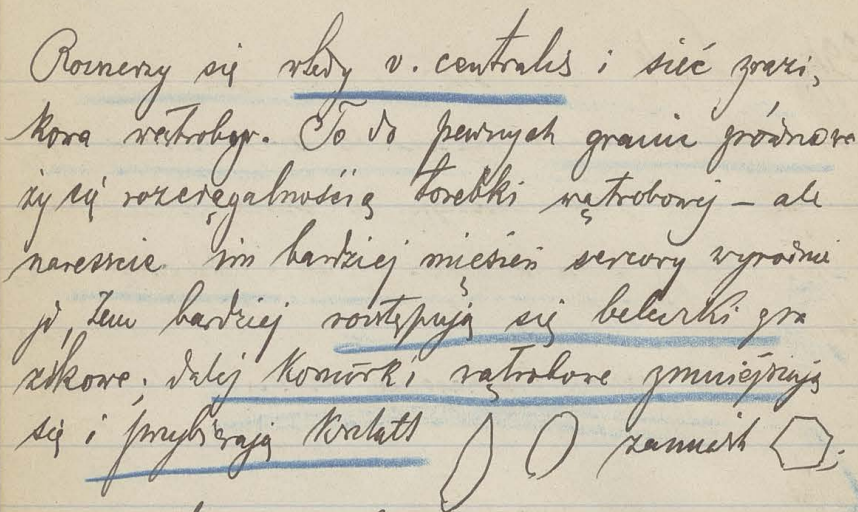 Rozszerzy się wtedy v. centralis i sieć zrazi,
kowa wątroby. To do pewnych granic równowa
ży się rozciągalnością torebki wątrobowej – ale
nareszcie im bardziej mięsień sercowy wyrodni
bardziej rozstępują się beleczki zra
zikowe; dalej komórki wątrobowe zmniejszają
się i przybierają kształt zamiast ;